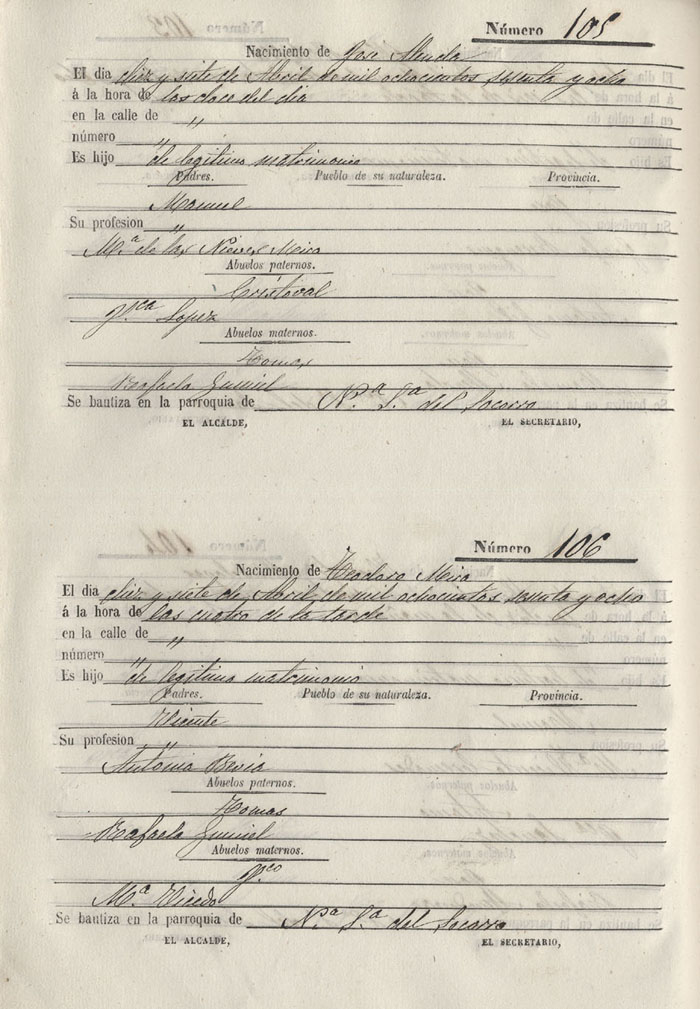 Número 105
Nacimiento de José Alenda
El dia diez y siete de Abril de mil ochocientos sesenta y ocho
á la hora de las doce del dia
en la calle de "
número "
Es hijo de legitimo matrimonio
Padres. Pueblo de su naturaleza. Provincia.
Manuel
Su profesion "
Mª de las Nieves Mira
Abuelos paternos.
Cristoval
Fca Lopez
Abuelos maternos.
Tomas
Rafaela Jumiel
Se bautiza en la parroquia de Nª Sª del Socorro
EL ALCALDE, EL SECRETARIO,
Número 106
Nacimiento de Teodoro Mira
El dia diez y siete de Abril de mil ochocientos sesenta y ocho
á la hora de las cuatro de la tarde
en la calle de "
número "
Es hijo de legitimo matrimonio
Padres. Pueblo de su naturaleza. Provincia.
Vicente
Su profesion "
Antonia
Abuelos paternos.
Tomas
Rafaela Jumiel
Abuelos maternos.
Fco
Mª Vicedo
Se bautiza en la parroquia de Nª Sª del Socorro
EL ALCALDE, EL SECRETARIO,